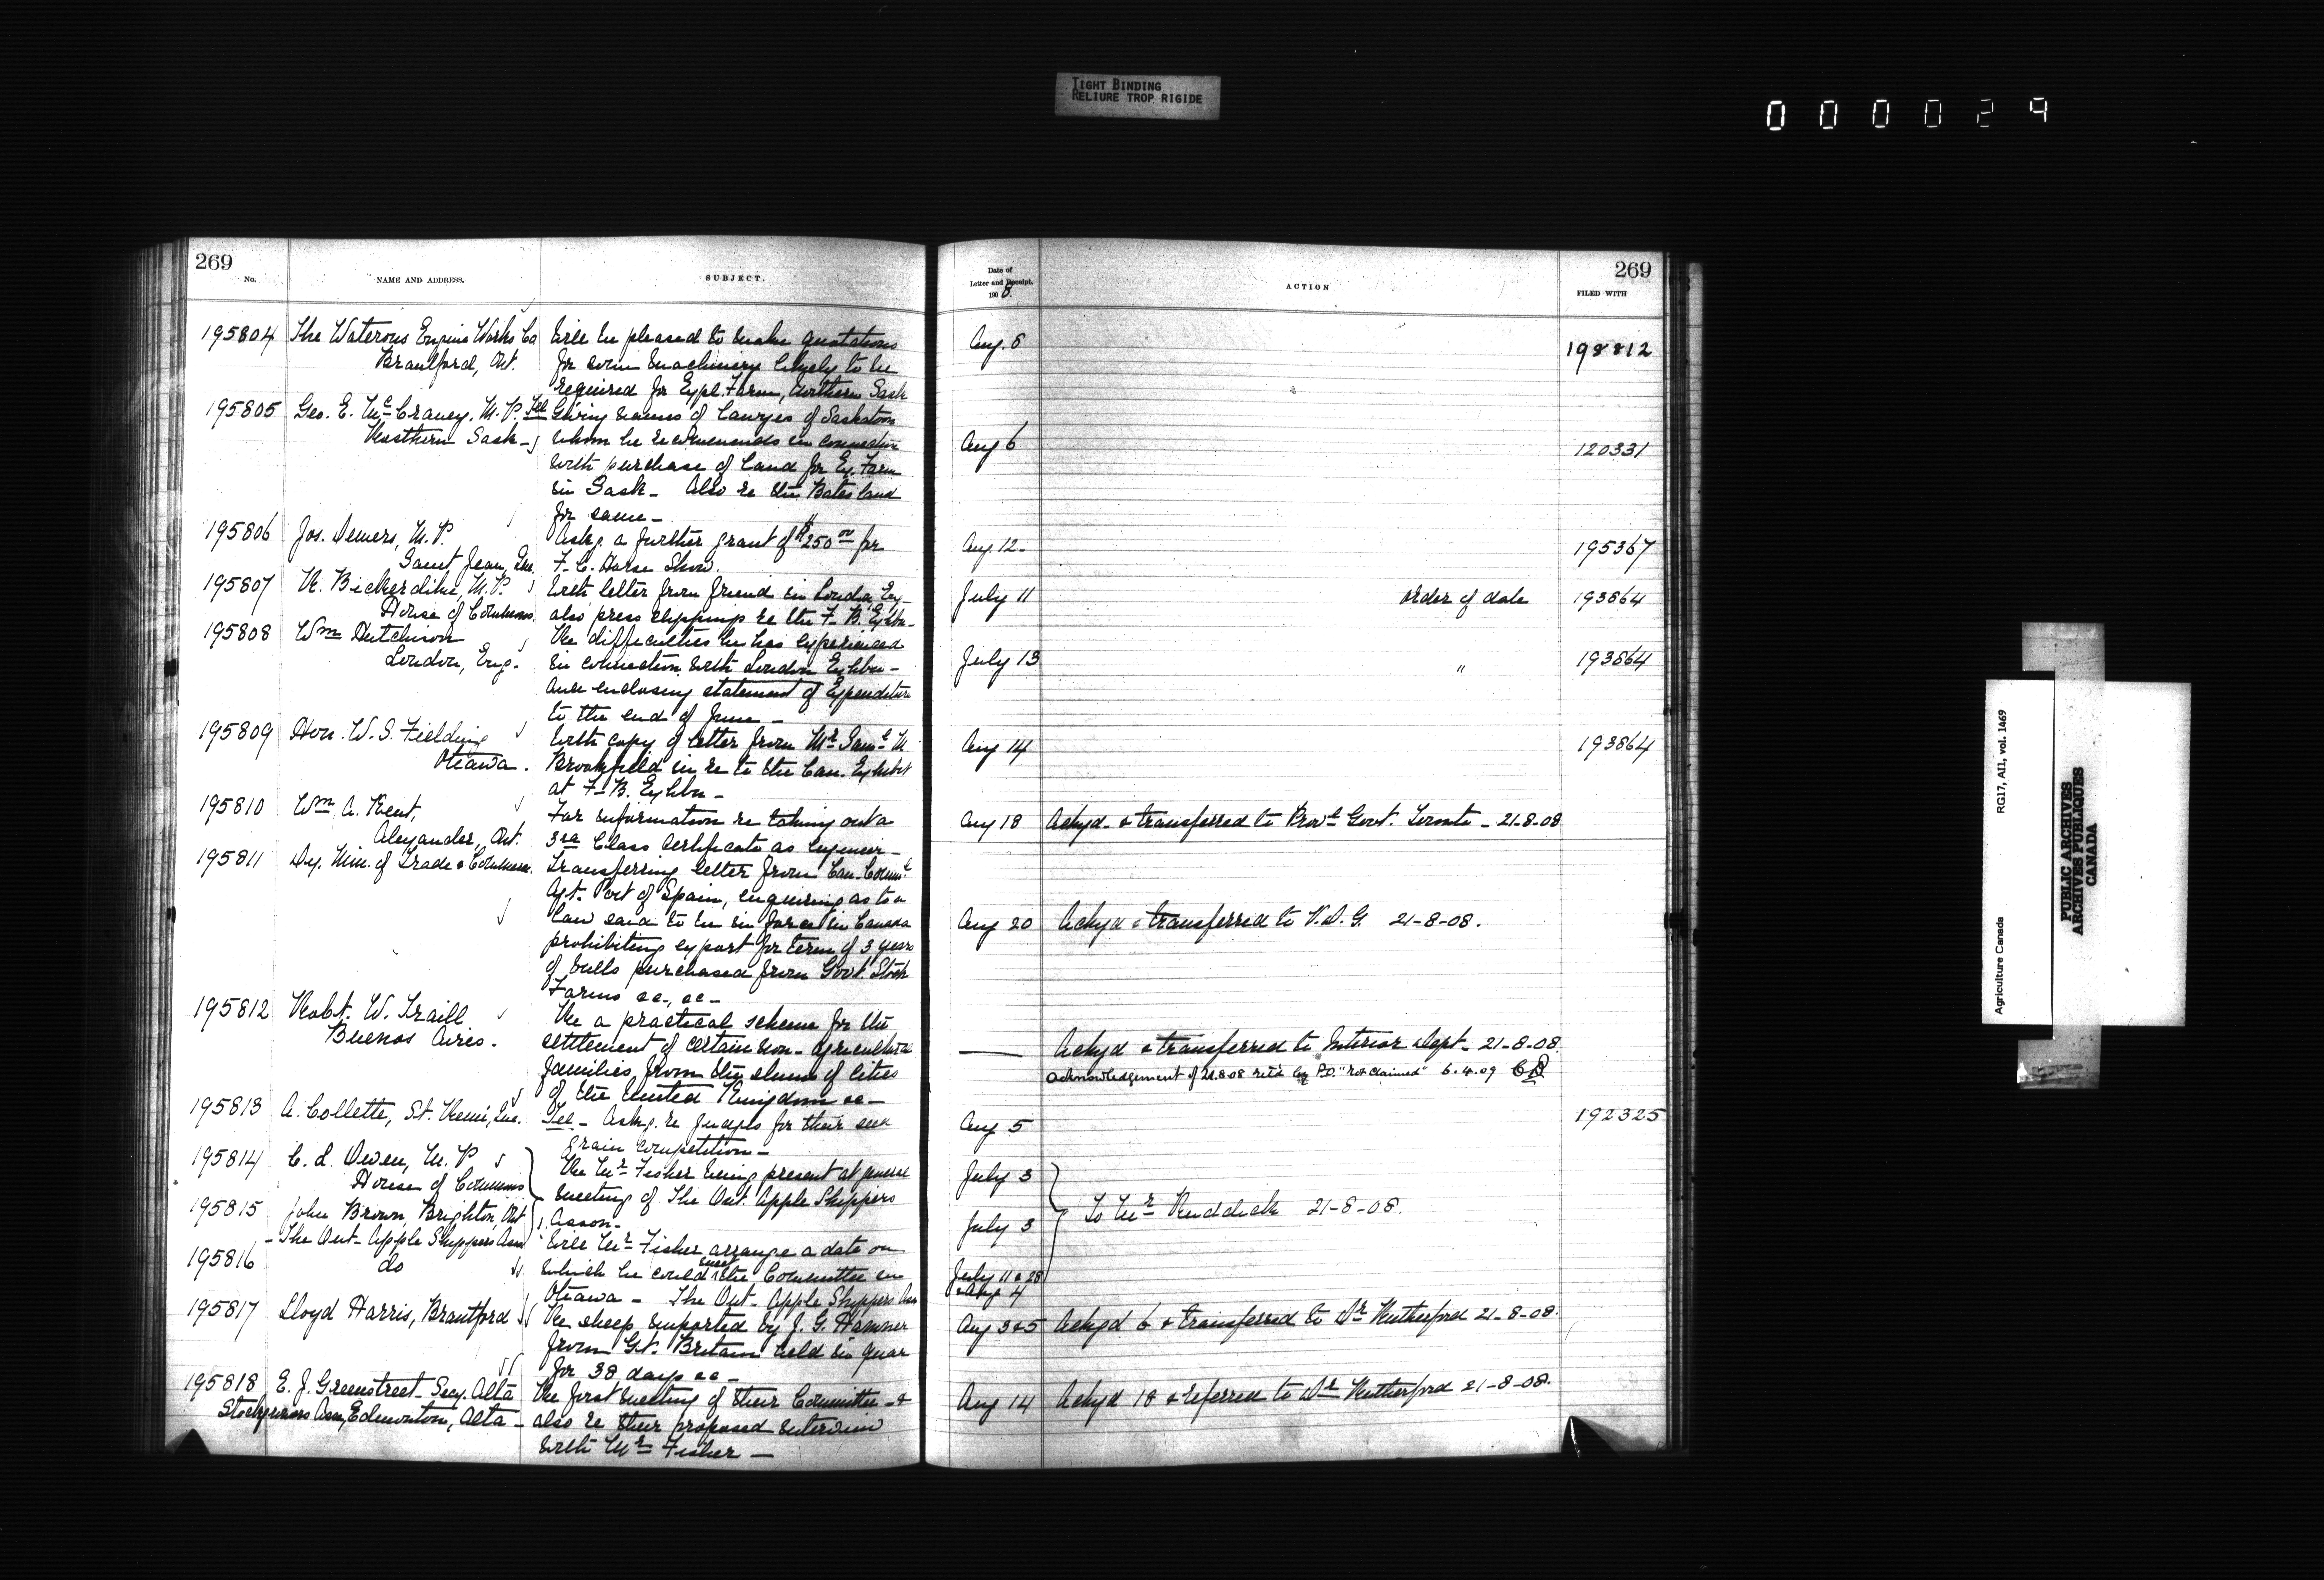 TIGHT BINDING
RELIURE TROP RIGIDE
000029
269
No.
NAME AND ADDRESS.
SUBJECT.
195804 The Waterous Engine Works Co
Brantford, Ont.
Will be pleased to make quotations
for some machinery likely to be
required for Expl. Farm, Northern Sask
195805 Geo. E. McCraney, M.P. Tel
Rosthern Sask -
Giving names of Lawyers of Saskatoon
whom he recommends in connection
with purchase of land for Ex. Farm
in Sask - Also re the Bates land
for same -
195806 Jos. Demers, M.P.
Saint Jean, Que.
Askg. a further grant of $250 00 for
F. C. Horse Show.
195807 R. Bickerdike, M.P.
House of Commons.
With letter from friend in London, Eng -
also press clippings re the F. B. Exhbn -
195808 Wm Hutchison
London, Eng.
Re difficulties he has experienced
in connection with London Exhbn -
and enclosing statement of Expenditure
to the end of June -
195809 Hon. W. S. Fielding
Ottawa.
With copy of letter from Mr Saml M
Brookfield in re to the Can. Exhibit
at F. B. Exhbn -
195810 Wm A. Kent,
Alexander, Ont.
For information re taking out a
3rd Class Certificate as Engineer -
195811 Dy. Min. of Trade & Commerce.
Transferring letter from Can. Comml
Agt. Port of Spain, enquiring as to a
law said to be in force in Canada
prohibiting export for term of 3 years
of bulls purchased from Govt. Stock
Farms &c., &c -
195812 Robt. W. Traill
Buenos Aires.
Re a practical scheme for the
settlement of certain non-agricultural
families from the slums of cities
of the United Kingdom &c -
195813 A. Collette, St. Remi, Que.
Tel - Askg. re Judges for their seed
grain competition -
195814 C. L. Owen, M.P
House of Commons
Re Mr Fisher being present at general
meeting of The Ont. Apple Shippers
Asson -
195815 John Brown, Brighton, Ont
- The Ont. Apple Shippers Assn
195816 do
Will Mr Fisher arrange a date on
which he could meet the Committee in
Ottawa - The Ont. Apple Shippers Assn
195817 Lloyd Harris, Brantford
Re sheep imported by J. G. Hanmer
from Gt. Britain held in quar
for 38 days &c -
195818 E. J. Greenstreet Secy. Alta
Stockgrowers Assn, Edmonton, Alta -
Re first meeting of their Committee - &
also re their proposed interview
with Mr Fisher -
Date of
Letter and Receipt.
1908.
ACTION
269
FILED WITH
Aug. 6 198812
Aug 6 120331
Aug 12 - 195367
July 11 order of date 193864
July 13 " 193864
Aug 14 193864
Aug 18 Ackgd. & transferred to Provl Govt. Toronto - 21-8-08
Aug 20 Ackgd & transferred to V.D.G. 21-8-08.
Ackgd & transferred to Interior Dept - 21-8-08.
acknowledgement of 21.8.08 ret'd by P.O. "not claimed" 6.4.09
Aug 5 192325
July 3
July 3 To Mr Ruddick 21-8-08.
July 11 & 28
& Aug 4
Aug 3 & 5 Ackgd 6 & transferred to Dr Rutherford 21-8-08.
Aug 14 Ackgd 18 & referred to Dr Rutherford 21-8-08.
Agriculture Canada RG17, AII, vol. 1469
PUBLIC ARCHIVES
ARCHIVES PUBLIQUES
CANADA